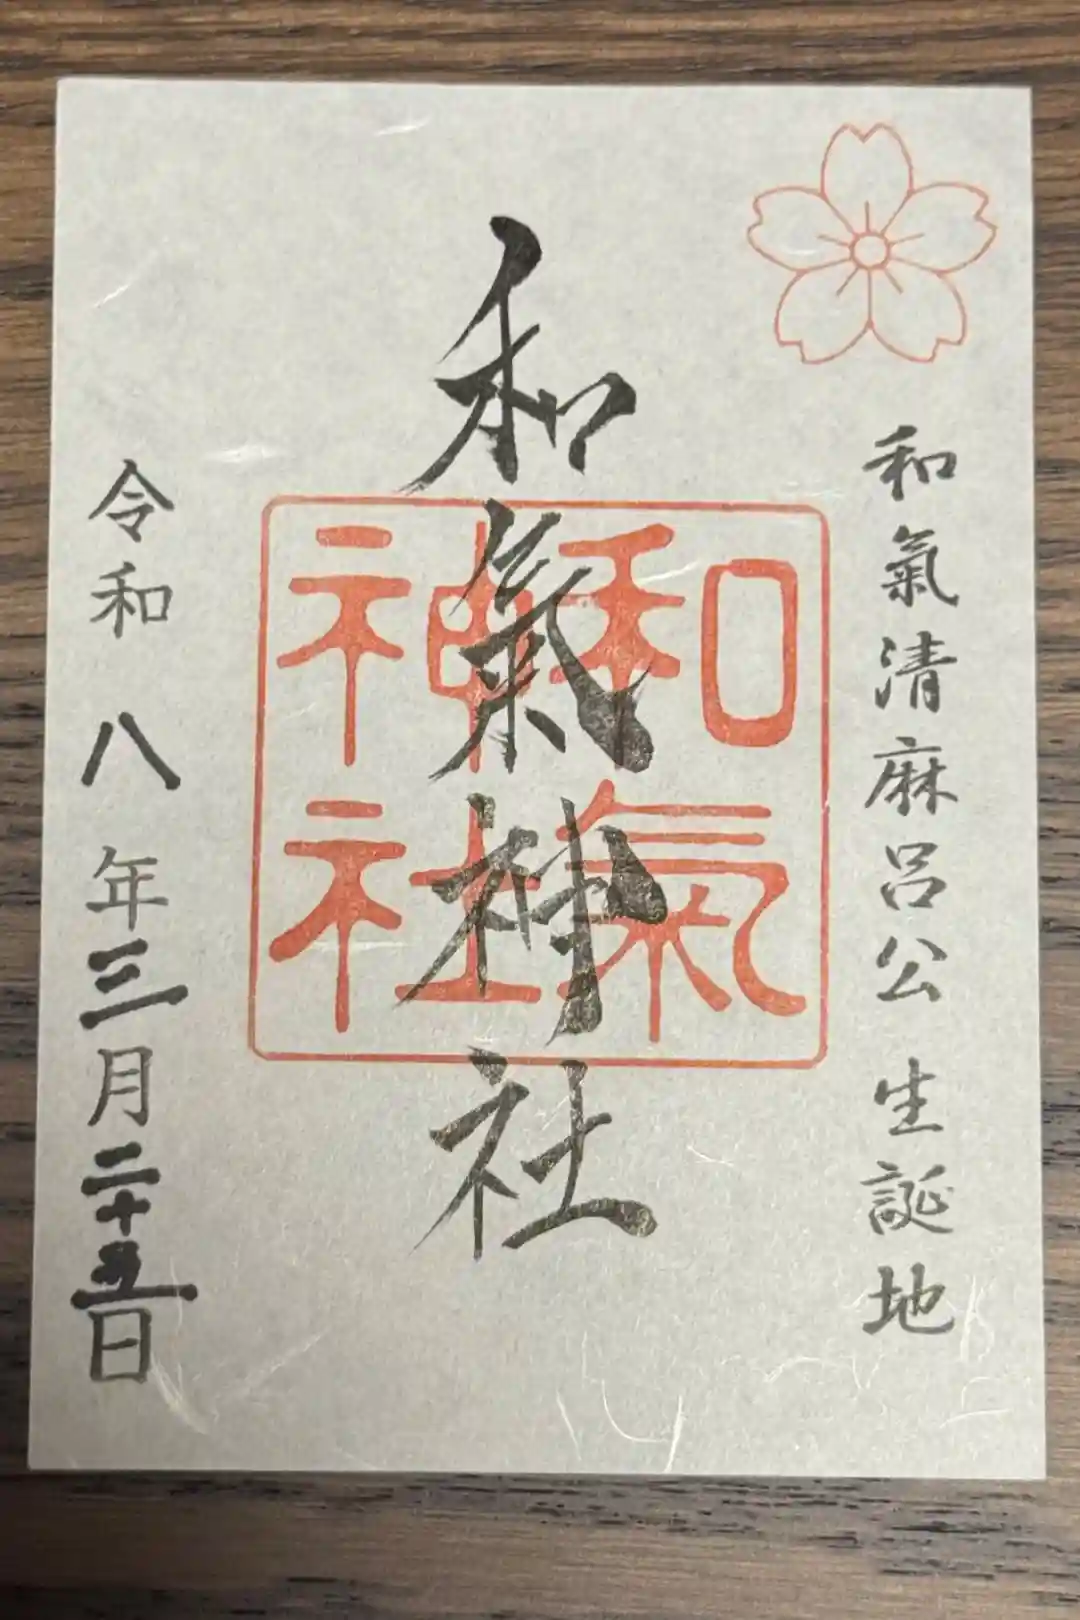 和氣清麻呂公 生誕地
和氣神社
和氣
神社
令和 八 年三月二十五日